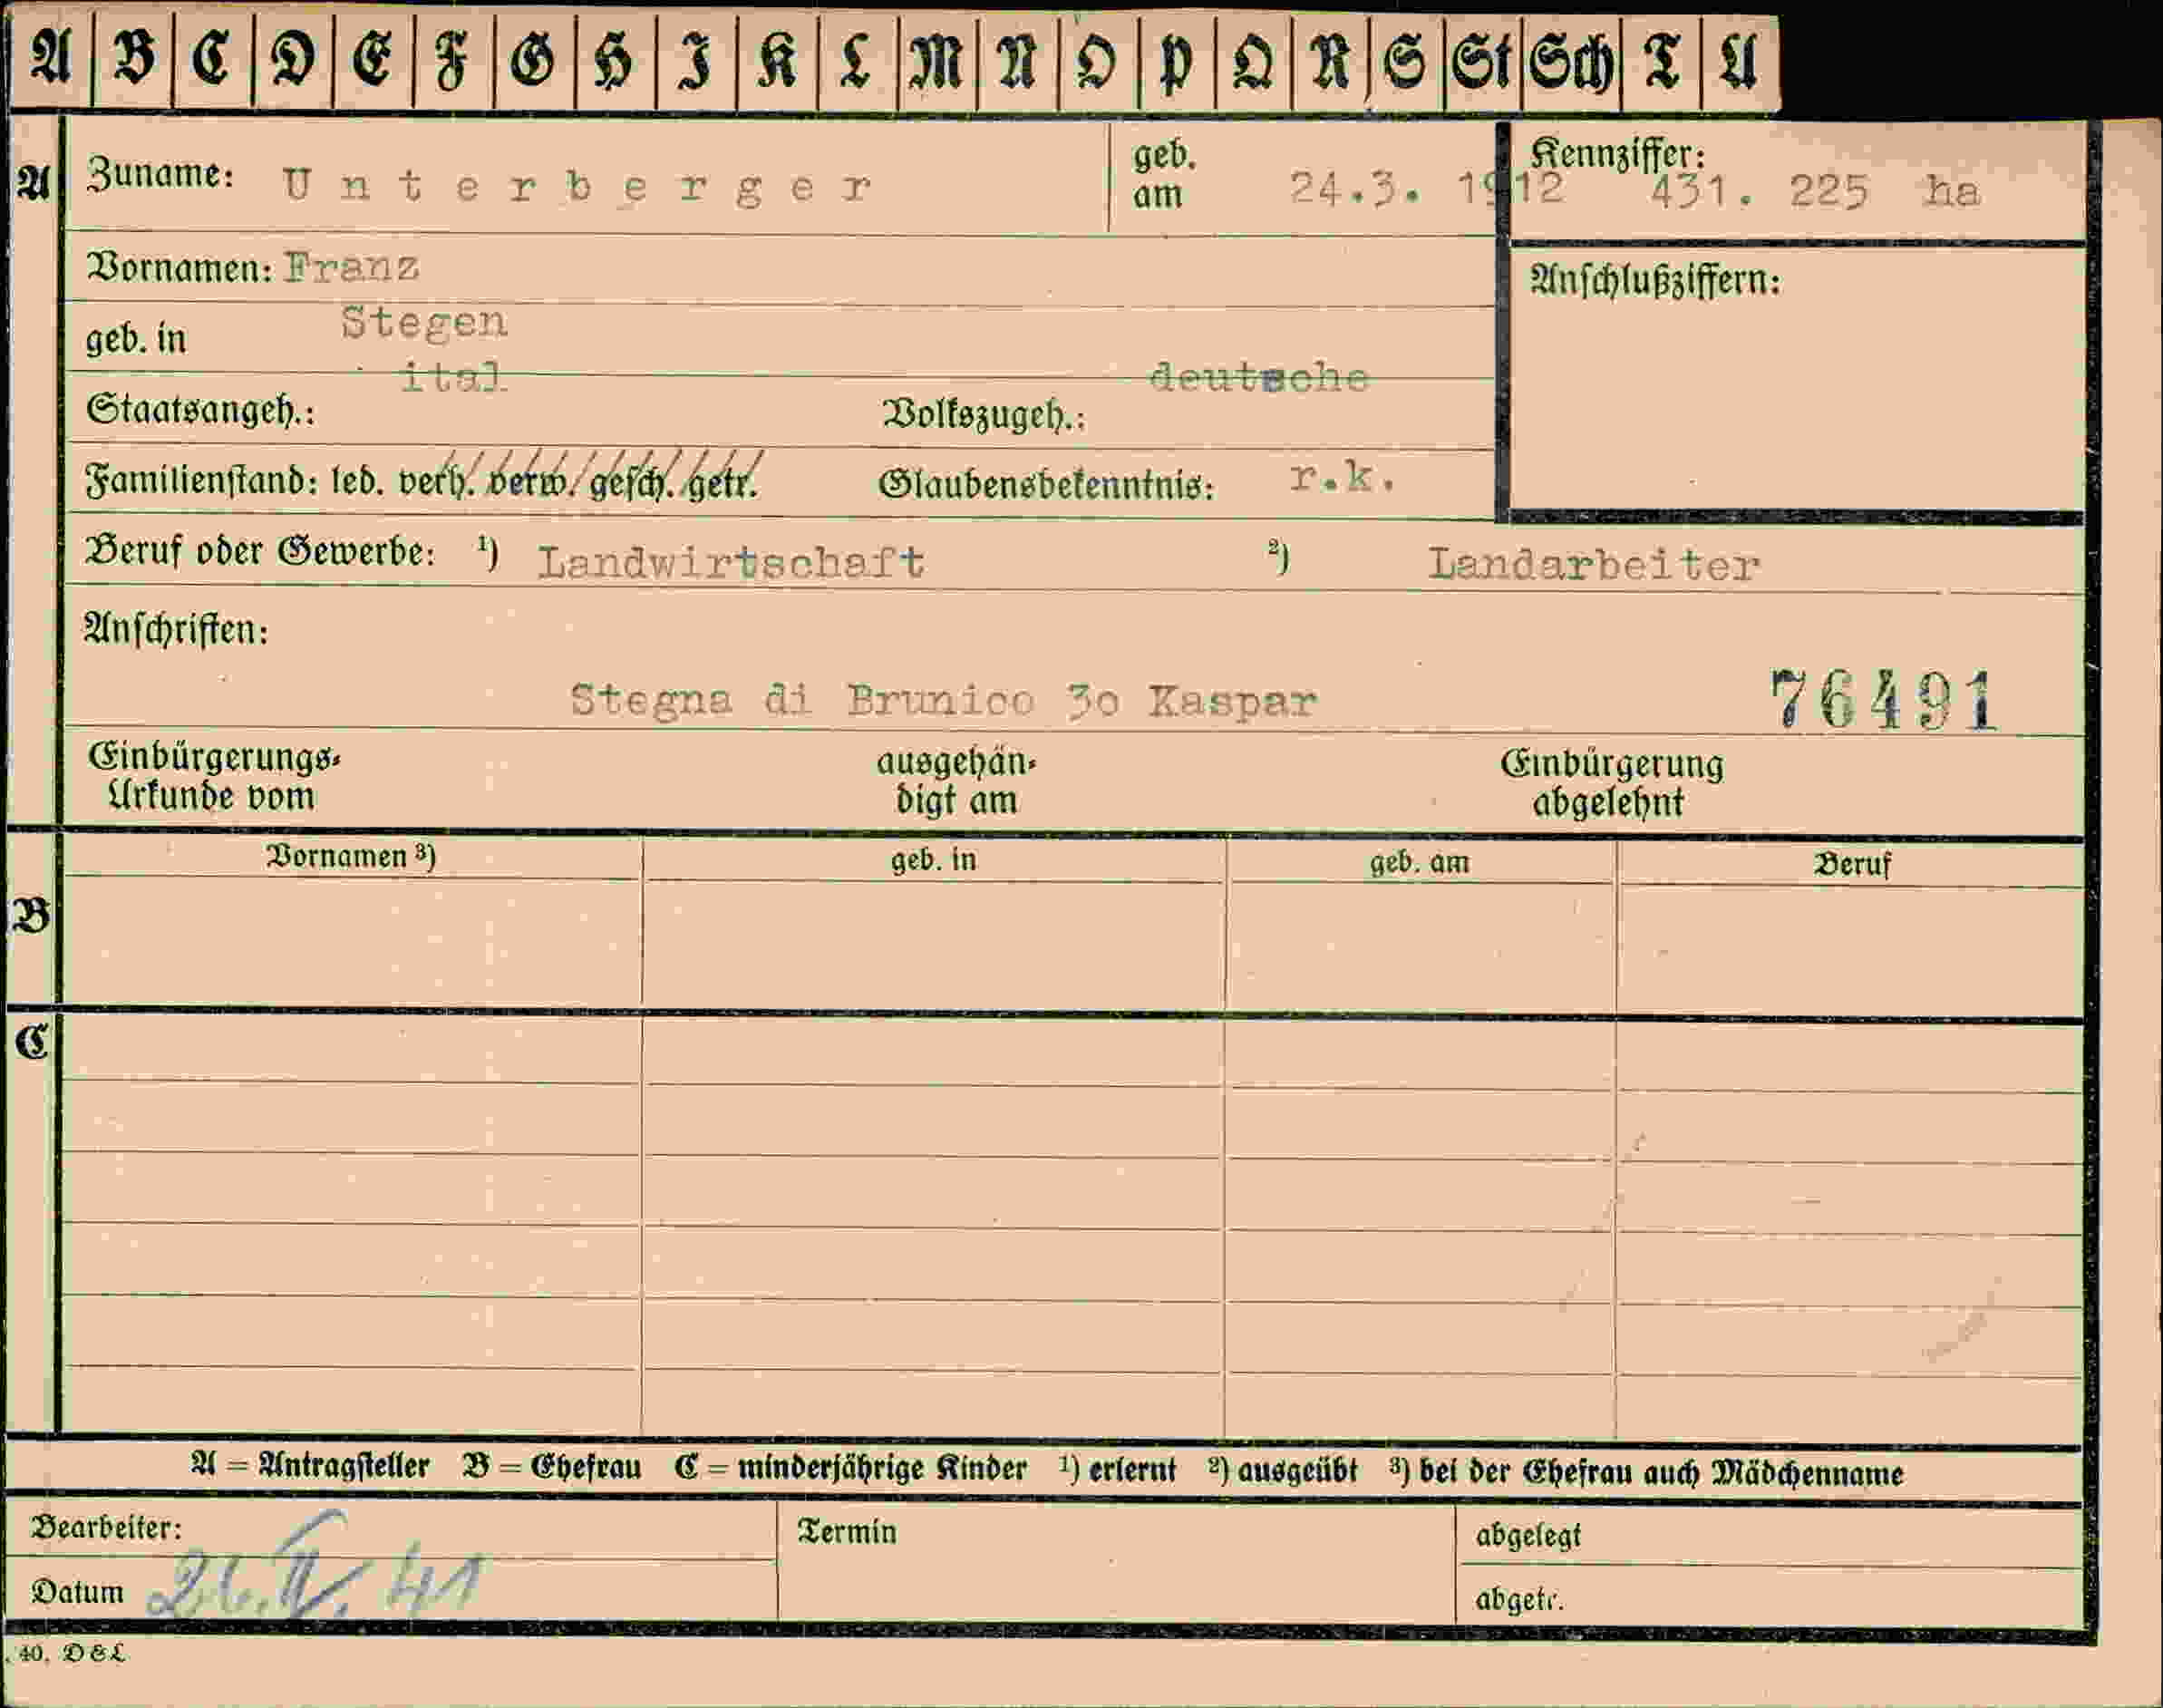 A B C D E F G H I K L M N O P Q R S St Sch T U
A
Zuname: Unterberger geb. am 24.3. 1912 Kennziffer: 431. 225 ha
Vornamen: Franz
Anschlußziffern:
geb. in Stegen
ital deutsche
Staatsangeh.: Volkszugeh.:
Familienstand: led. verh. verw. gesch. getr. Glaubensbekenntnis: r.k.
Beruf oder Gewerbe: ¹) Landwirtschaft ²) Landarbeiter
Anschriften:
Stegna di Brunico 30 Kaspar 76491
Einbürgerungs- ausgehän- Einbürgerung
Urkunde vom digt am abgelehnt
Vornamen ³) geb. in geb. am Beruf
B
C
A = Antragsteller B = Ehefrau C = minderjährige Kinder ¹) erlernt ²) ausgeübt ³) bei der Ehefrau auch Mädchenname
Bearbeiter: Termin abgelegt
Datum 41 abgetr.
40. D & L